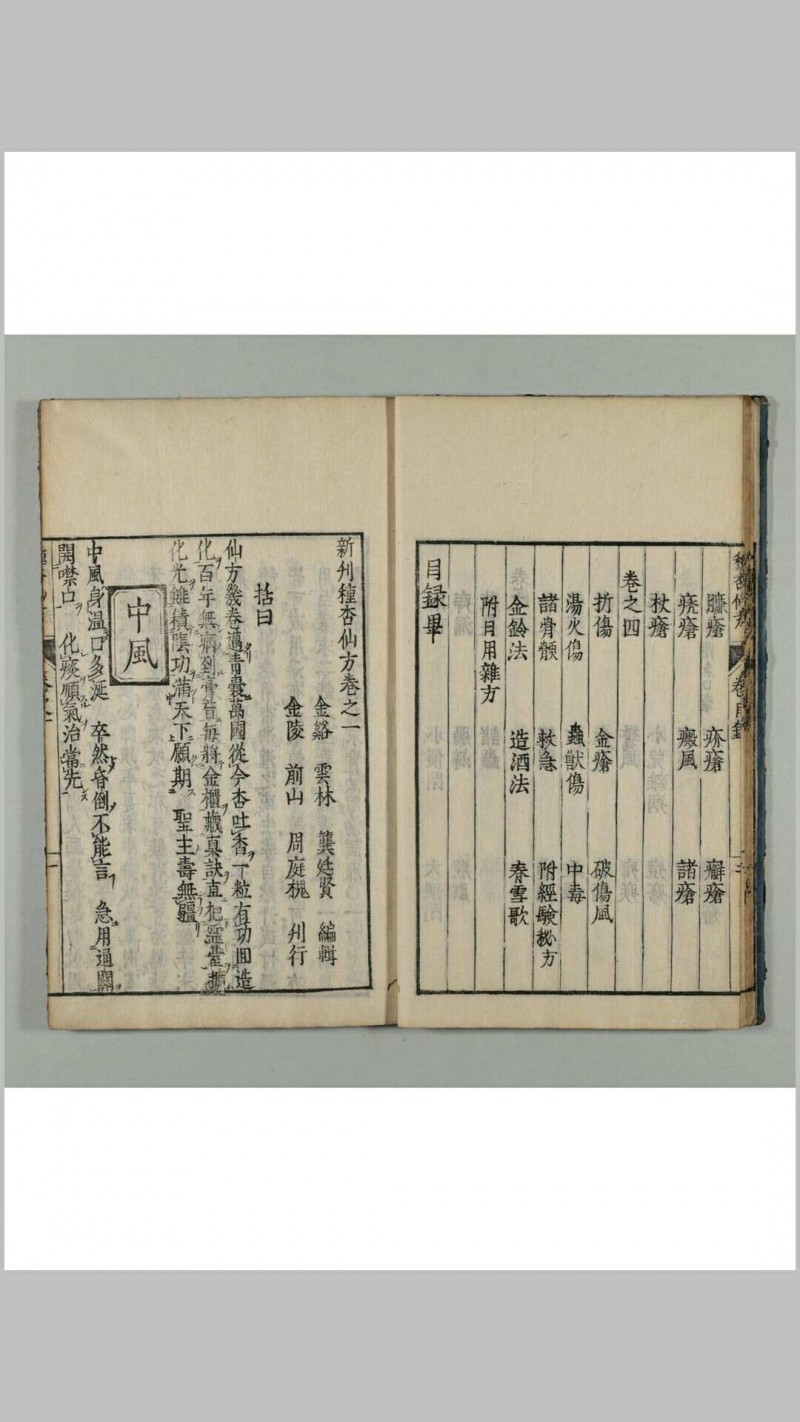 臁瘡 疥瘡 癬瘡
癜風 諸瘡
杖瘡
卷之四
折傷 金瘡 破傷風
湯火傷 蟲獸傷 中毒
諸骨骾 救急 附經験秘方
金鈴法 造酒法 春雪歌
附日用雜方
目録畢
新刋種杏仙方卷之一
金谿 雲林 龔廷賢 編輯
金陵 前山 周庭槐 刋行
括曰
仙方幾卷過青囊萬國從今杏吐香一粒有功回造
化百年無病到膏肓每將金櫃藏真訣直把靈臺
化光雖積陰功滿天下願期 聖主壽無疆
中風
中風身温口多涎 卒然昏倒不能言 急用通關
開噤口 化痰順氣治當先